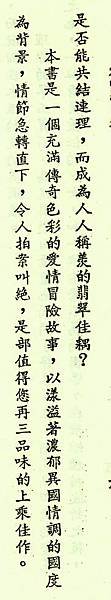 是否能共結連理，而成為人人稱羨的翡翠佳耦？
本書是一個充滿傳奇色彩的愛情冒險故事，以漾溢著濃郁異國情調的國度
為背景，情節急轉直下，令人拍案叫絕，是部值得您再三品味的上乘佳作。